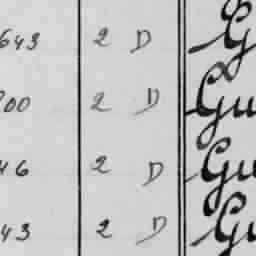 643 2 D G
00 2 D Gu
46 2 D Gu
43 2 D Gu